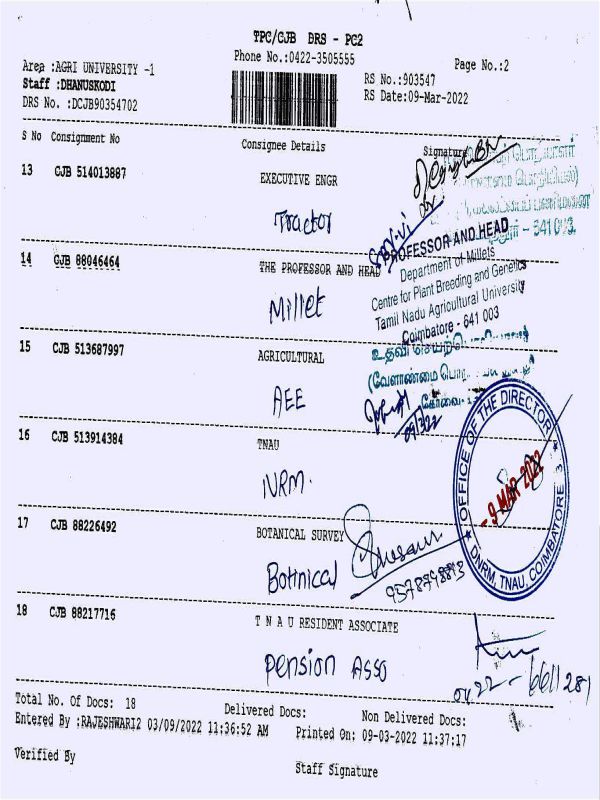 TPC/CJB DRS - PC2
Phone No.:0422-3505555
Page No.:2
Area :AGRI UNIVERSITY -1
Staff :DHANUSKODI
DRS No. :DCJB90354702
RS No.:903547
RS Date:09-Mar-2022
S No Consignment No Consignee Details Signature
13 CJB 514013887 EXECUTIVE ENGR
Tractor
- 641 003.
14 GJB 88046464 THE PROFESSOR AND HEAD
Millet
PROFESSOR AND HEAD
Department of Millets
Centre for Plant Breeding and Genetics
Tamil Nadu Agricultural University
Coimbatore - 641 003
15 CJB 513687997 AGRICULTURAL
AEE
உதவி செயற்பொறியாளர்
(வேளாண்மை
கோவை
16 CJB 513914384 TNAU
NRM.
OFFICE OF THE DIRECTOR
- 9 MAR 2022
DNRM, TNAU, COIMBATORE
17 CJB 88226492 BOTANICAL SURVEY
Botinical
18 CJB 88217716 T N A U RESIDENT ASSOCIATE
Pension Asso
0422 - 6611281
Total No. Of Docs: 18 Delivered Docs: Non Delivered Docs:
Entered By :RAJESHWARI2 03/09/2022 11:36:52 AM Printed On: 09-03-2022 11:37:17
Verified By
Staff Signature